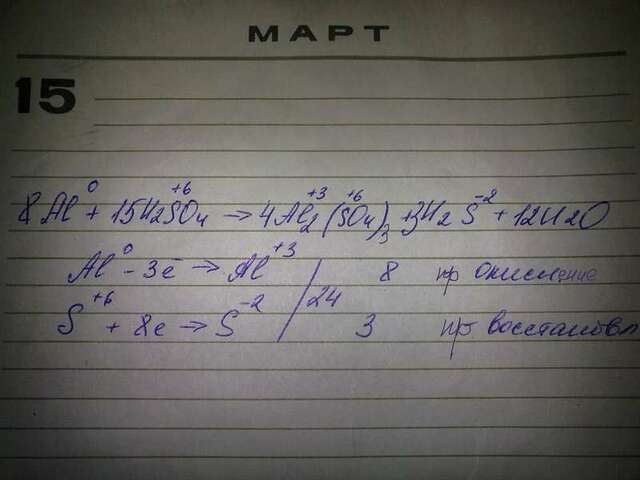 МАРТ
15
8Al⁰ + 15H2S⁺⁶O4 → 4Al⁺³2(S⁺⁶O4)3 + 3H2S⁻² + 12H2O
Al⁰ - 3ē → Al⁺³ / 8 пр окисление
24
S⁺⁶ + 8e → S⁻² / 3 пр восстановл